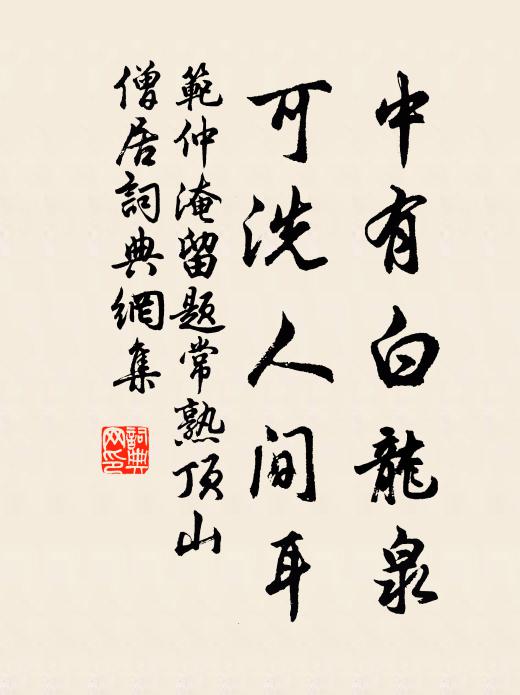 中有白龍泉
可洗人間耳
範仲淹留題常熟頂山
僧居詞典網集
詞典
网印